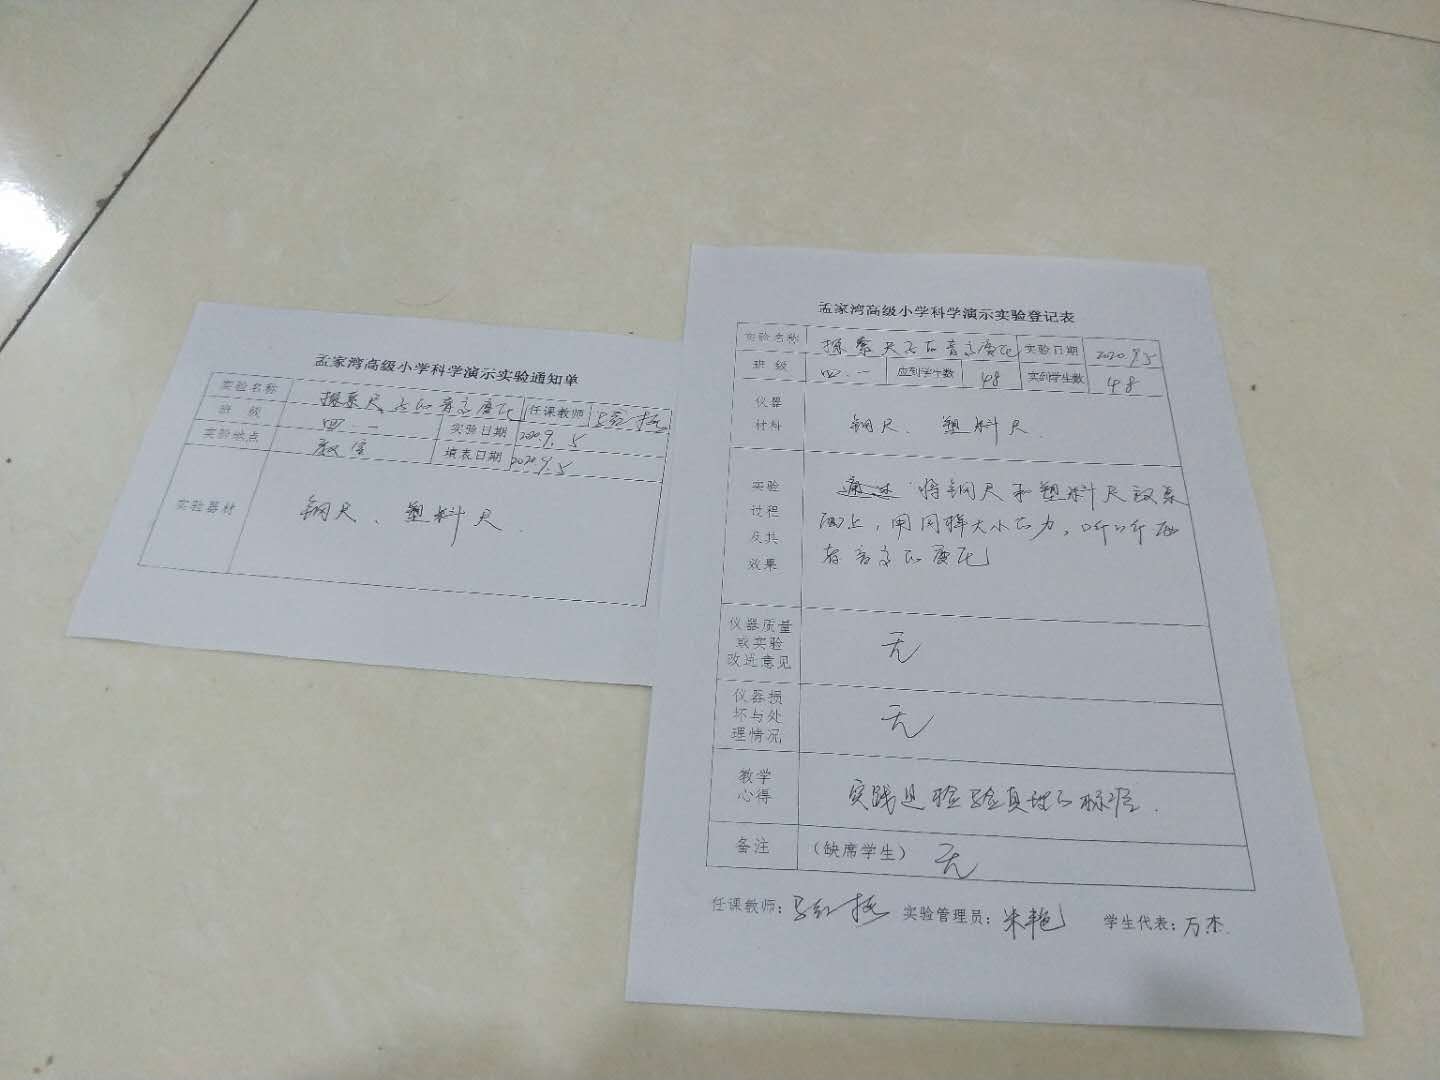 孟家湾高级小学科学演示实验通知单
实验名称 探索尺子的音高变化 任课教师
班 级 四.一 实验日期 2020.9.5
实验地点 教室 填表日期 2020.9.5
实验器材 钢尺、塑料尺.
孟家湾高级小学科学演示实验登记表
实验名称 探索尺子的音高变化 实验日期 2020.9.5
班 级 四.一 应到学生数 48 实到学生数 48
仪器
材料
钢尺、塑料尺.
实验
过程
及其
效果
将钢尺和塑料尺放桌
面上,用同样大小的力,听听两
者音高的变化
仪器质量
或实验
改进意见
无
仪器损
坏与处
理情况
无
教学
心得
实践是检验真理的标准.
备注 (缺席学生) 无
任课教师: 实验管理员:朱艳 学生代表:万杰.